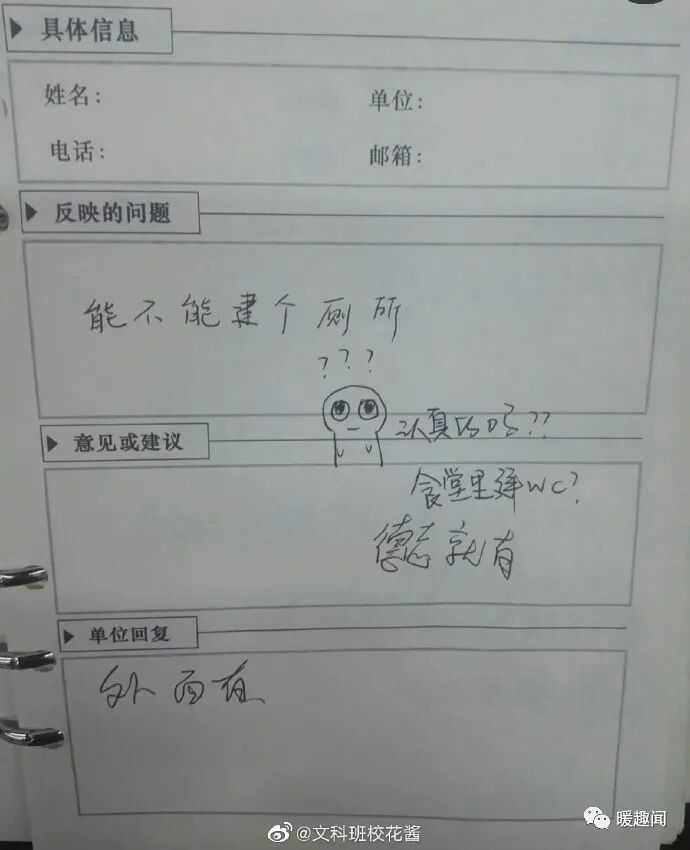 具体信息
姓名：
单位：
电话：
邮箱：
反映的问题
能不能建个厕所
???
认真的吗??
意见或建议
食堂里建WC?
德志就有
单位回复
外面有
@文科班校花酱
暖趣闻